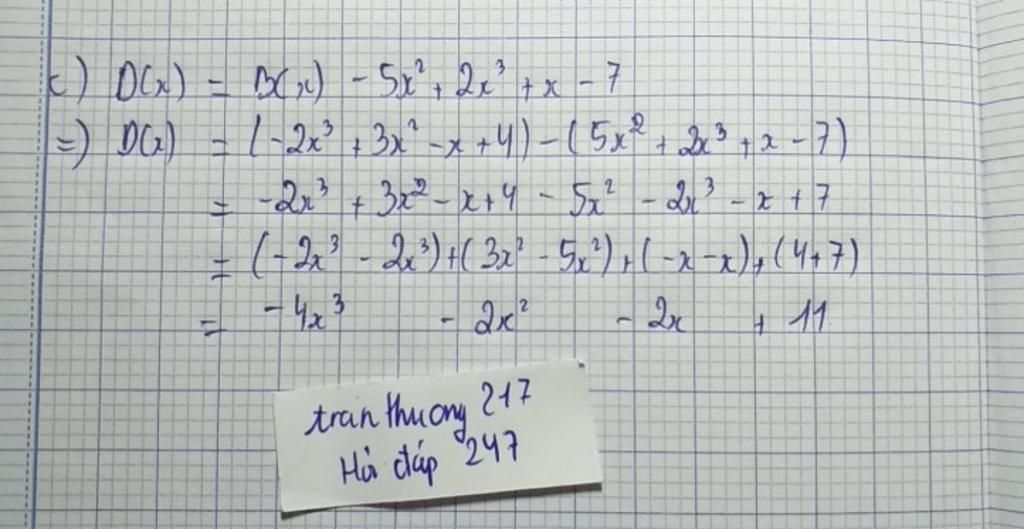 c) D(x) = B(x) - 5x² + 2x³ + x - 7
=) D(x) = (-2x³ + 3x² - x + 4) - (5x² + 2x³ + x - 7)
= -2x³ + 3x² - x + 4 - 5x² - 2x³ - x + 7
= (-2x³ - 2x³) + (3x² - 5x²) + (-x - x) + (4 + 7)
= -4x³ - 2x² - 2x + 11
tranthuong 217
Hỏi đáp 247